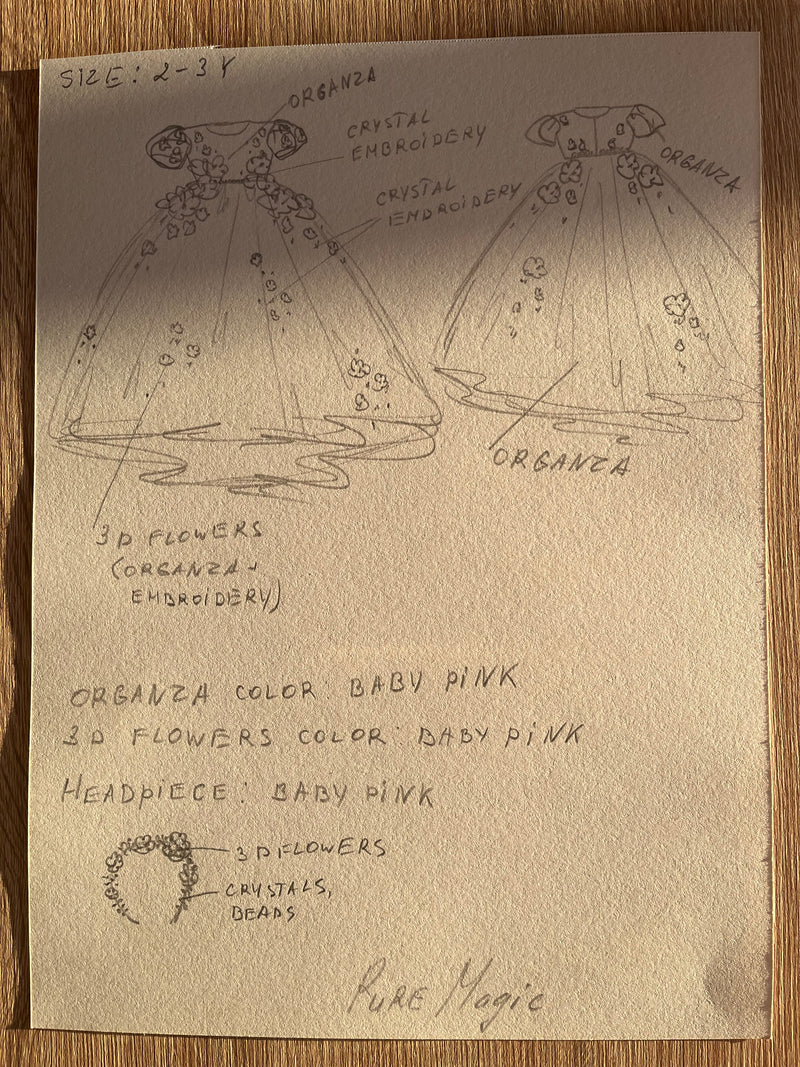 SIZE: 2-3Y
ORGANZA
CRYSTAL
EMBROIDERY
CRYSTAL
EMBROIDERY
ORGANZA
ORGANZA
3D FLOWERS
(ORGANZA+
EMBROIDERY)
ORGANZA COLOR: BABY PINK
3D FLOWERS COLOR: BABY PINK
HEADPIECE: BABY PINK
3D FLOWERS
CRYSTALS,
BEADS
PURE Magic